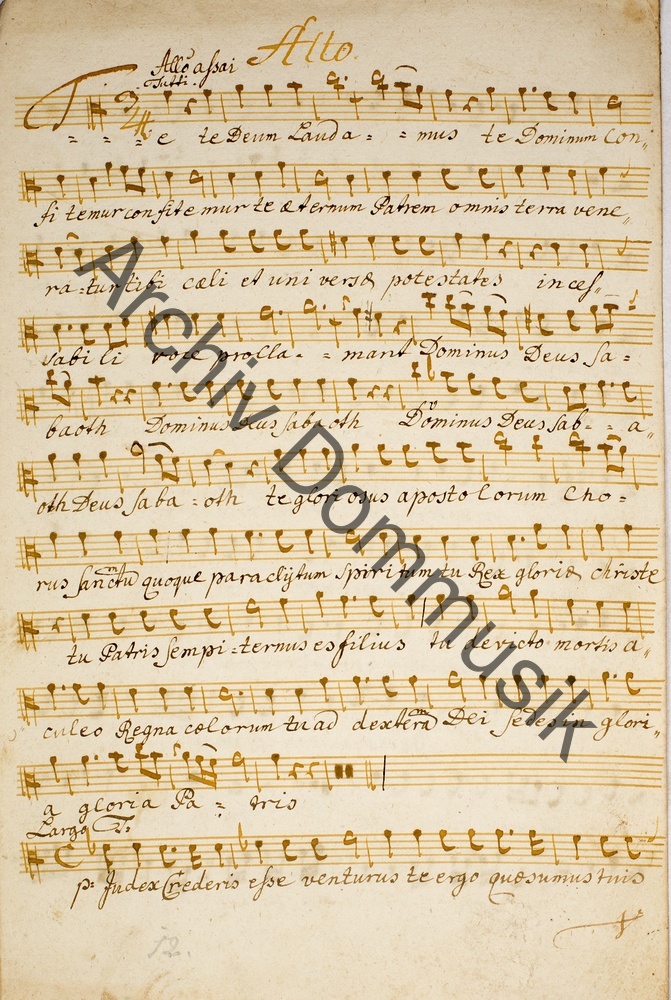 Alto.
All? assai
Tutti.
Te = = = e te Deum Lauda = = mus te Dominum Con„
fi temur confite mur te æternum Patrem omnis terra vene„
ra = tur tibi cæli et uni versæ potestates in ces„
sabi li voce procla = = mant Dominus Deus Sa =
baoth Dominus Deus sabaoth Dominus Deus Sab = = a„
oth Deus saba = oth te glori osus aposto lorum Cho =
rus Sanctū quoque paraclytum Spiritum tu Rex gloriæ christe
tu Patris sempi = ternus es filius tu devicto mortis a„
culeo Regna cœlorum tu ad dexteram Dei sedes in glori„
a gloria Pa = tris
Largo T:
p: Judex Crederis esse venturus te ergo quæsumus tuis
12.
Archiv Dommusik